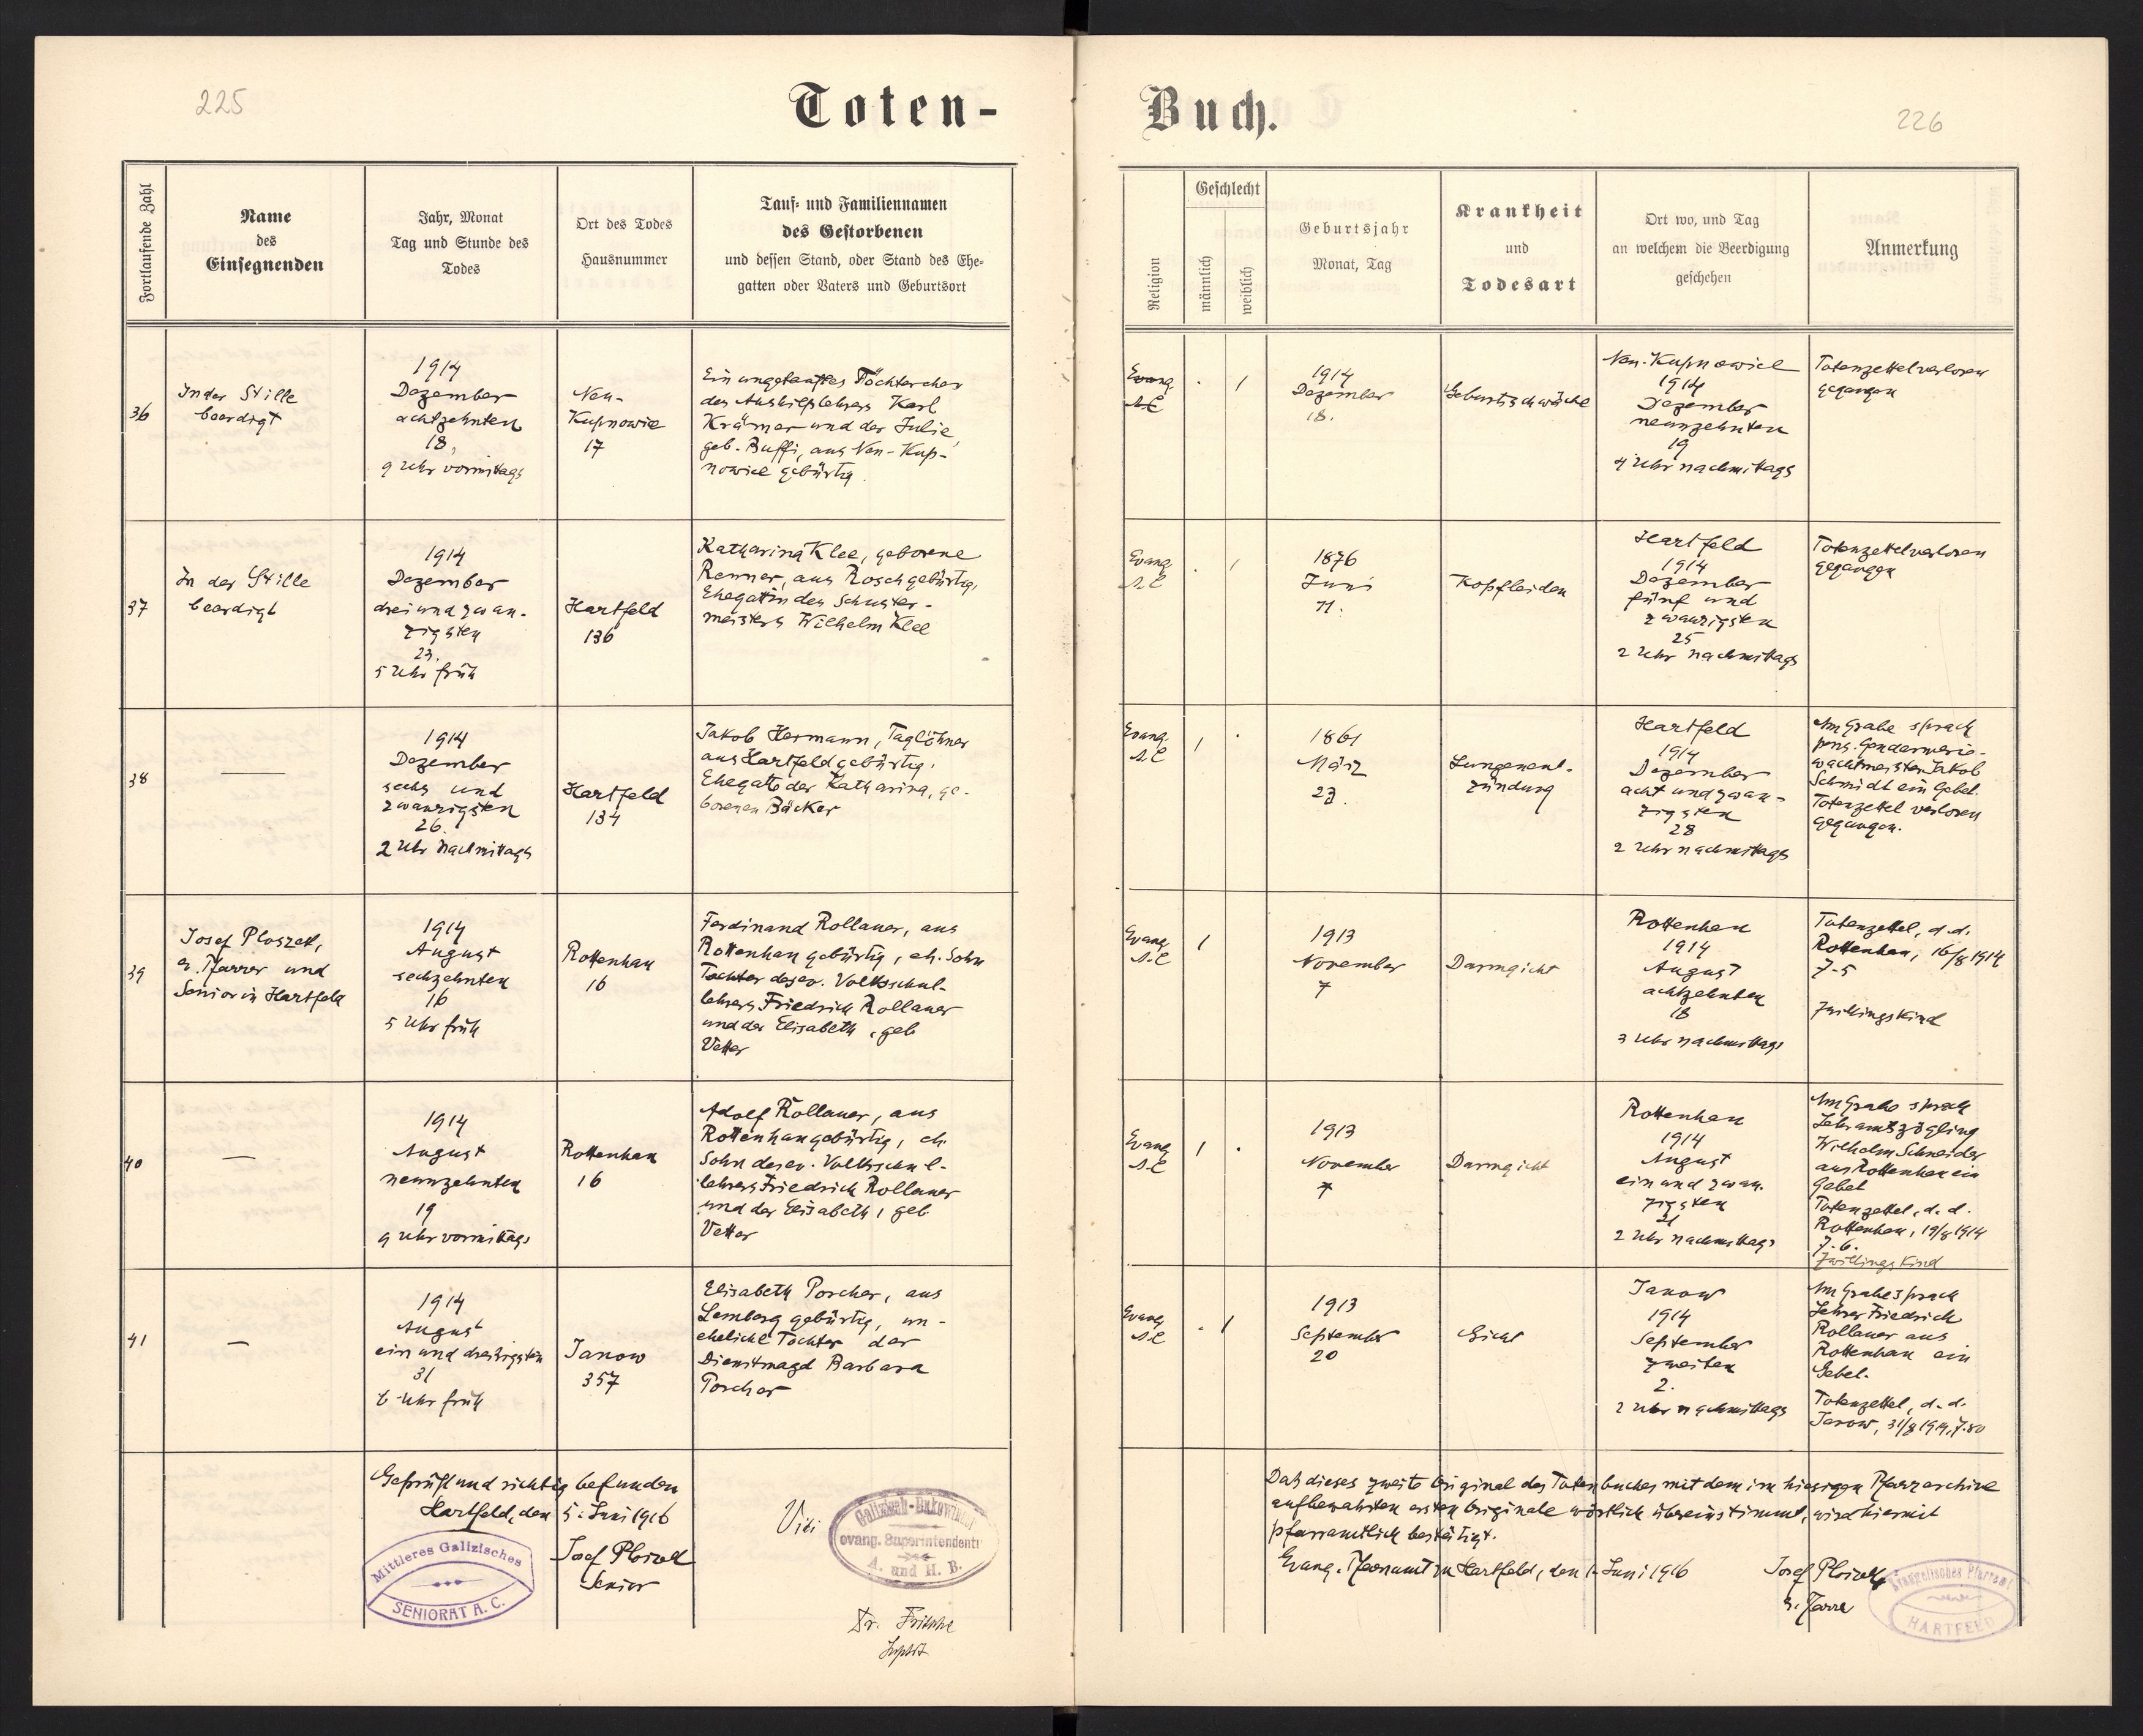 225
Toten-
Fortlaufende Zahl
Name
des
Einsegnenden
Jahr, Monat
Tag und Stunde des
Todes
Ort des Todes
Hausnummer
Tauf- und Familiennamen
des Gestorbenen
und dessen Stand, oder Stand des Ehe-
gatten oder Vaters und Geburtsort
36
In der Stille
beerdigt
1914
Dezember
achtzehnten
18.
9 Uhr vormittags
Neu-
Kupnowice
17
Ein ungetauftes Töchterchen
des Aushilfslehrers Karl
Krämer und der Julie,
geb. Buffi, aus Neu-Kup-
nowice gebürtig.
37
In der Stille
beerdigt
1914
Dezember
drei und zwan-
zigsten
23.
5 Uhr früh
Hartfeld
136
Katharina Klee, geborene
Renner, aus Rosch gebürtig,
Ehegattin des Schuster-
meisters Wilhelm Klee
38
—
1914
Dezember
sechs und
zwanzigsten
26.
2 Uhr nachmittags
Hartfeld
134
Jakob Hermann, Taglöhner
aus Hartfeld gebürtig,
Ehegatte der Katharina, ge-
borenen Bäcker
39
Josef Ploszek,
ev. Pfarrer und
Senior in Hartfeld
1914
August
sechzehnten
16
5 Uhr früh
Rottenhan
16
Ferdinand Rollauer, aus
Rottenhan gebürtig, eh. Sohn
Tochter des ev. Volksschul-
lehrers Friedrich Rollauer
und der Elisabeth, geb
Vetter
40
—
1914
August
neunzehnten
19
9 Uhr vormittags
Rottenhan
16
Adolf Rollauer, aus
Rottenhan gebürtig, eh.
Sohn des ev. Volksschul-
lehrers Friedrich Rollauer
und der Elisabeth, geb.
Vetter
41
—
1914
August
ein und dreissigsten
31
6 Uhr früh
Janow
357
Elisabeth Porcher, aus
Lemberg gebürtig, un-
eheliche Tochter der
Dienstmagd Barbara
Porcher
Geprüft und richtig befunden
Hartfeld, den 5. Juni 1916
Josef Ploszek
Senior
Mittleres Galizisches
SENIORAT A. C.
Vidi
Galizisch-Bukowiner
evang. Superintendentur
A. und H. B.
Dr. Fritsche
Supdt
Buch.
226
Religion
Geschlecht
männlich
weiblich
Geburtsjahr
Monat, Tag
Krankheit
und
Todesart
Ort wo, und Tag
an welchem die Beerdigung
geschehen
Anmerkung
Evang.
A.C
1
1914
Dezember
18.
Geburtsschwäche
Neu-Kupnowice
1914
Dezember
neunzehnten
19
4 Uhr nachmittags
Totenzettel verloren
gegangen
Evang.
A.C
1
1876
Juni
11.
Kopfleiden
Hartfeld
1914
Dezember
fünf und
zwanzigsten
25
2 Uhr nachmittags
Totenzettel verloren
gegangen
Evang.
A.C
1
1861
März
23.
Lungenent-
zündung
Hartfeld
1914
Dezember
acht und zwan-
zigsten
28
2 Uhr nachmittags
Am Grabe sprach
pens. Gendarmerie-
wachtmeister Jakob
Schmidt ein Gebet.
Totenzettel verloren
gegangen.
Evang.
A.C
1
1913
November
7
Darmgicht
Rottenhan
1914
August
achtzehnten
18
3 Uhr nachmittags
Totenzettel, d. d.
Rottenhan, 16/8 1914
Z. 5
Zwillingskind
Evang
A.C
1
1913
November
7
Darmgicht
Rottenhan
1914
August
ein und zwan-
zigsten
21
2 Uhr nachmittags
Am Grabe sprach
Lehramtszögling
Wilhelm Schneider
aus Rottenhan ein
Gebet
Totenzettel, d. d.
Rottenhan, 19/8 1914
Z. 6.
Zwillingskind
Evang.
A.C
1
1913
September
20
Gicht
Janow
1914
September
zweiten
2.
2 Uhr nachmittags
Am Grabe sprach
Lehrer Friedrich
Rollauer aus
Rottenhan ein
Gebet.
Totenzettel, d. d.
Janow, 31/8 1914, Z. 80
Dass dieses zweite Original des Totenbuches mit dem im hiesigen Pfarrarchive
aufbewahrten ersten Originale wörtlich übereinstimmt, wird hiermit
pfarramtlich bestätigt.
Evang. Pfarramt zu Hartfeld, den 1. Juni 1916
Josef Ploszek
ev. Pfarrer
Evangelisches Pfarramt
HARTFELD